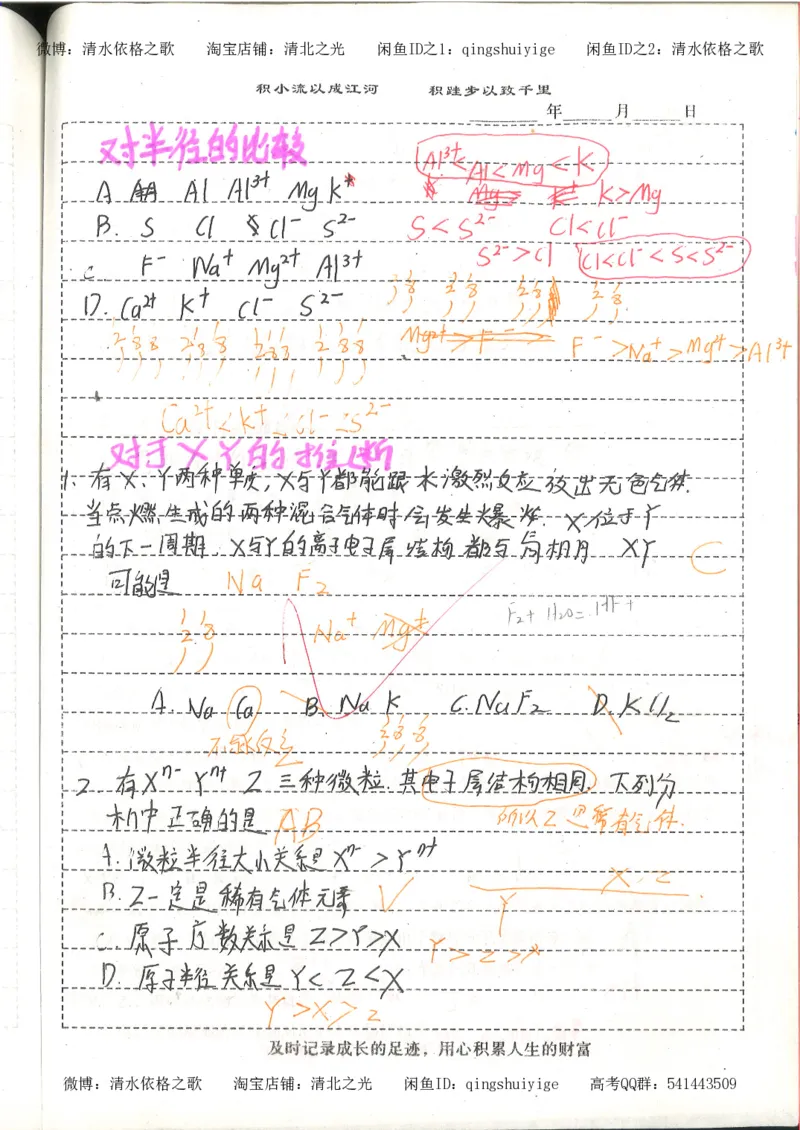 微博：清水依格之歌 淘宝店铺：清北之光 闲鱼ID之1：qingshuiyige 闲鱼ID之2：清水依格之歌
积小流以成江河 积跬步以致千里
年 月 日
对半径的比较
Al³⁺<Al<Mg<K
A Al Al³⁺ Mg K
K>Mg
B. S Cl Cl⁻ S²⁻
S<S²⁻ Cl<Cl⁻
S²⁻>Cl Cl<Cl⁻<S<S²⁻
C F⁻ Na⁺ Mg²⁺ Al³⁺
D. Ca²⁺ K⁺ Cl⁻ S²⁻
F⁻>Na⁺>Mg²⁺>Al³⁺
Ca²⁺<K⁺<Cl⁻<S²⁻
对于XY的推断
1. 有X、Y两种单质，X与Y都能跟水激烈反应放出无色气体.
当点燃生成的两种混合气体时会发生爆炸. X位于Y
的下一周期，X与Y的离子电子层结构都与氖相同 XY
C
可能是 Na F₂
F₂+H₂O=HF+
2 8
Na⁺ Mg⁺
A. Na Ca B. Na K C. Na F₂ D. K Cl₂
2 8 8
2. 有Xⁿ⁻ Yⁿ⁺ Z 三种微粒. 其电子层结构相同. 下列分
析中正确的是 AB
所以Z是稀有气体.
A. 微粒半径大小关系是Xⁿ⁻>Yⁿ⁺
B. Z一定是稀有气体元素
X Z
Y
C. 原子序数关系是Z>Y>X
Y>Z>X
D. 原子半径关系是Y<Z<X
Y>X>Z
及时记录成长的足迹，用心积累人生的财富
微博：清水依格之歌 淘宝店铺：清北之光 闲鱼ID：qingshuiyige 高考QQ群：541443509